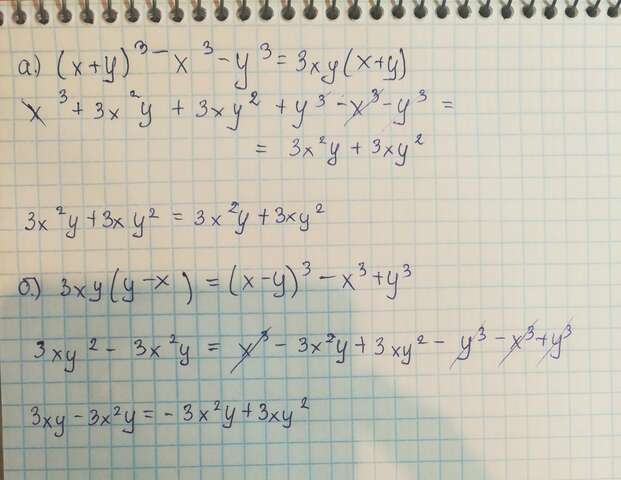 а.) (x+y)³ - x³ - y³ = 3xy(x+y)
x³ + 3x²y + 3xy² + y³ - x³ - y³ =
= 3x²y + 3xy²
3x²y + 3xy² = 3x²y + 3xy²
б.) 3xy(y-x) = (x-y)³ - x³ + y³
3xy² - 3x²y = x³ - 3x²y + 3xy² - y³ - x³ + y³
3xy - 3x²y = - 3x²y + 3xy²